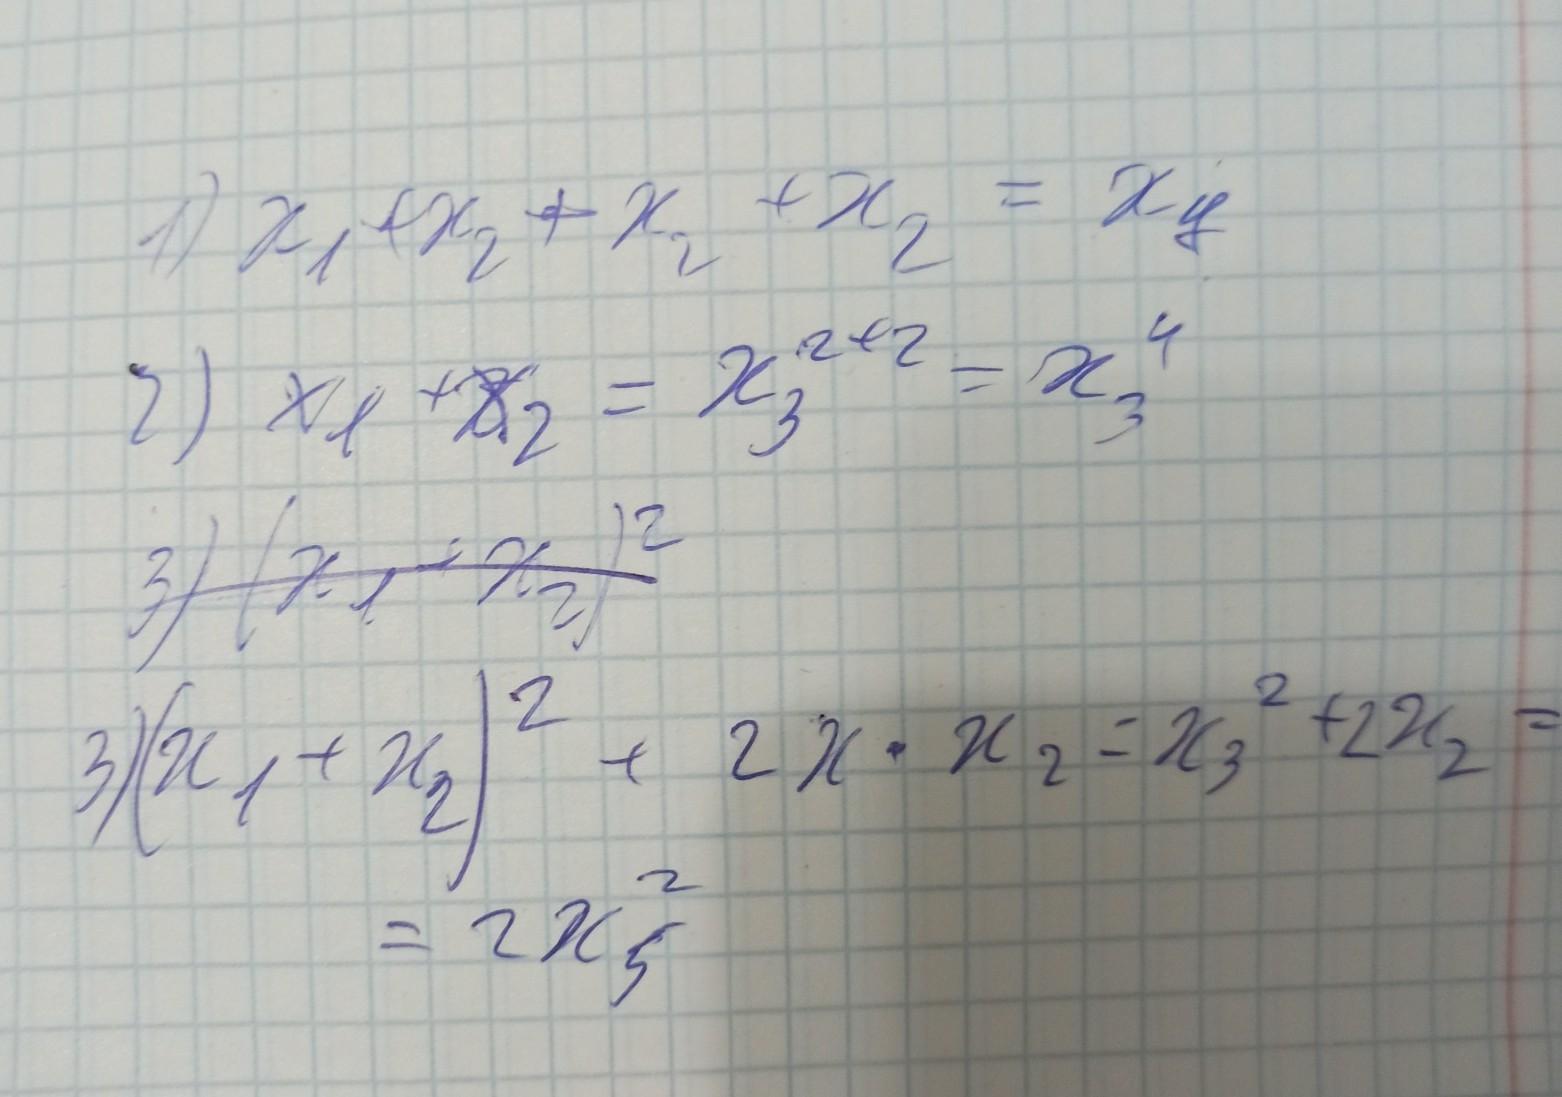 1) x₁ + x₂ + x₂ + x₂ = xy
2) x₁ + x₂ = x₃²⁺² = x₃⁴
3) (x₁ + x₂)²
3) (x₁ + x₂)² + 2x · x₂ = x₃² + 2x₂ =
= 2x₅²